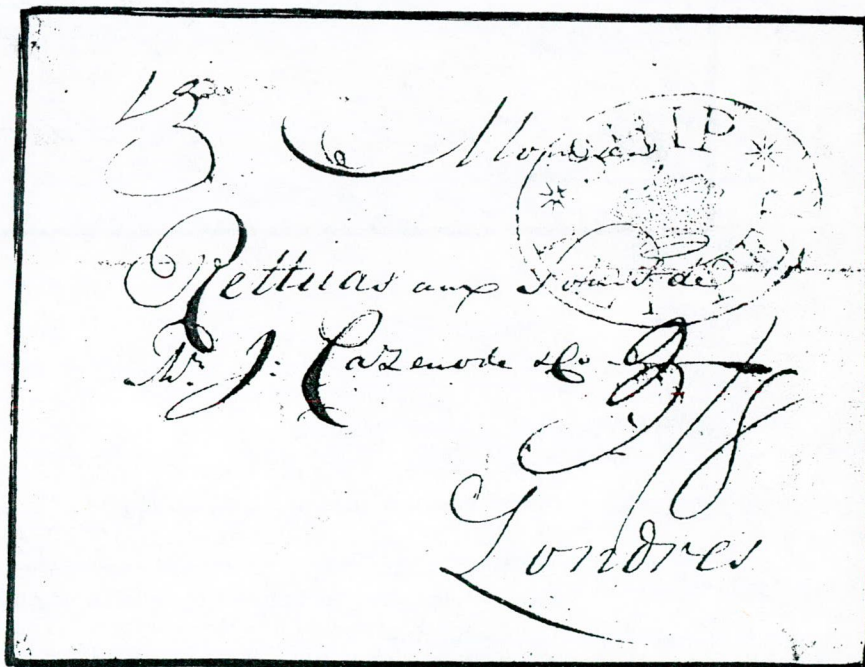 à Monsieur
SHIP LETTER
Rettuas aux soins de
Mr. J: Cazenode & Co 3/8
Londres